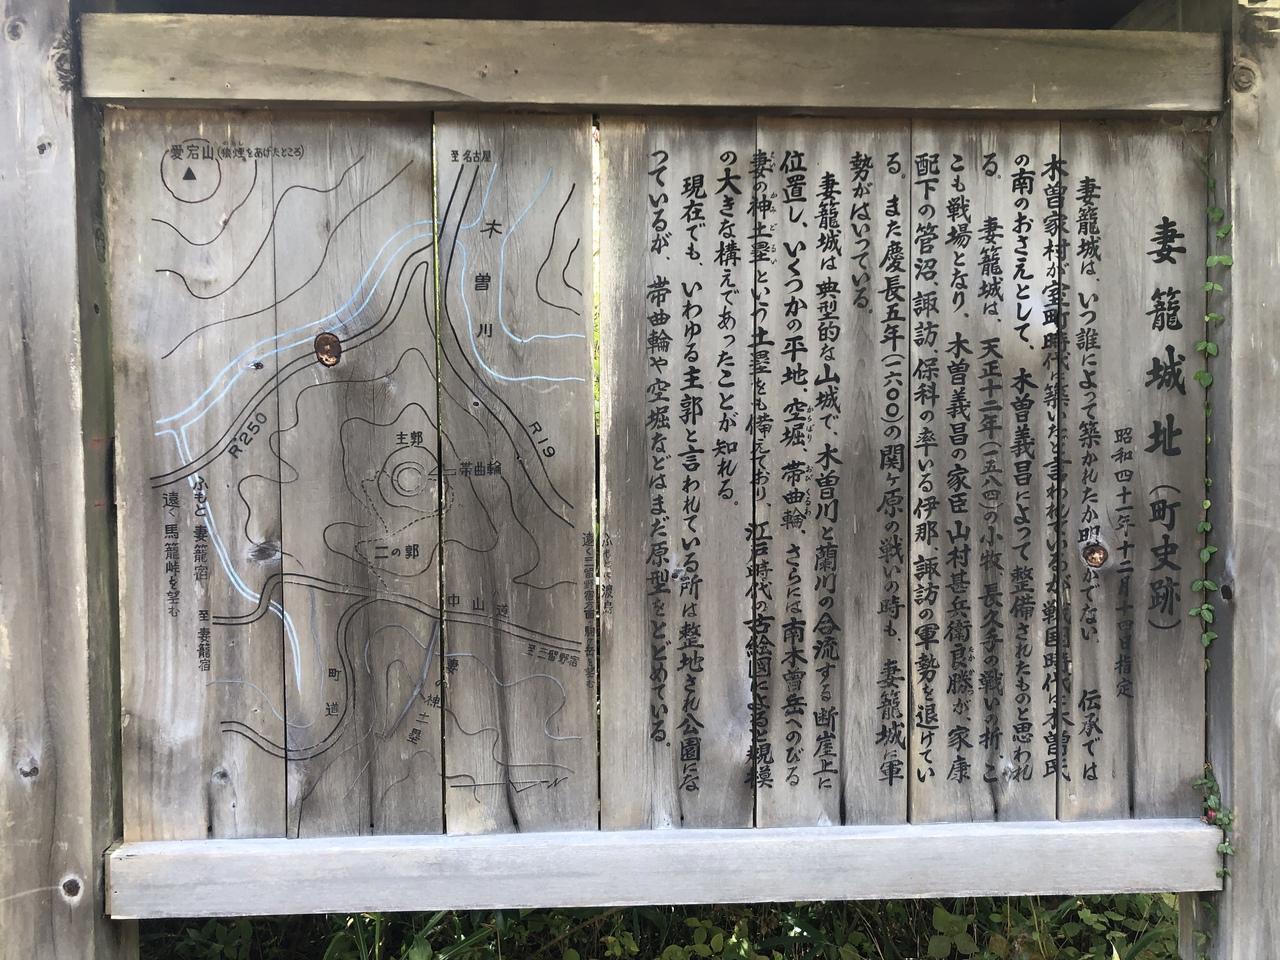 妻籠城址(町史跡)
昭和四十一年十二月十四日指定
妻籠城は、いつ誰によって築かれたか明かでない。 伝承では
木曽家村が室町時代築いたと言われているが戦国時代に木曽氏
の南のおさえとして、木曽義昌によって整備されたものと思われ
る。 妻籠城は、天正十二年(一五八四)の小牧、長久手の戦いの折、こ
こも戦場となり、木曽義昌の家臣山村甚兵衛良勝が、家康
配下の管沼、諏訪、保科の率いる伊那、諏訪の軍勢を退けてい
る。また慶長五年(一六〇〇)の関ヶ原の戦いの時も、妻籠城に軍
勢がはいっている。
妻籠城は典型的な山城で、木曽川と蘭川の合流する断崖上に
位置し、いくつかの平地、空堀、帯曲輪、さらには南木曽岳へのびる
妻の神土塁という土塁をも備えており、江戸時代の古絵図によると規模
の大きな構えであったことが知れる。
現在でも、いわゆる主郭と言われている所は整地され公園にな
っているが、帯曲輪や空堀などはまだ原型をとどめている。
愛宕山(狼煙をあげたところ)
至名古屋
木曽川
R250
R19
主郭
帯曲輪
二の郭
ふもと 妻籠宿
遠く 馬籠峠を望む
至 妻籠宿
中山道
至三留野宿
町道
妻の神土塁